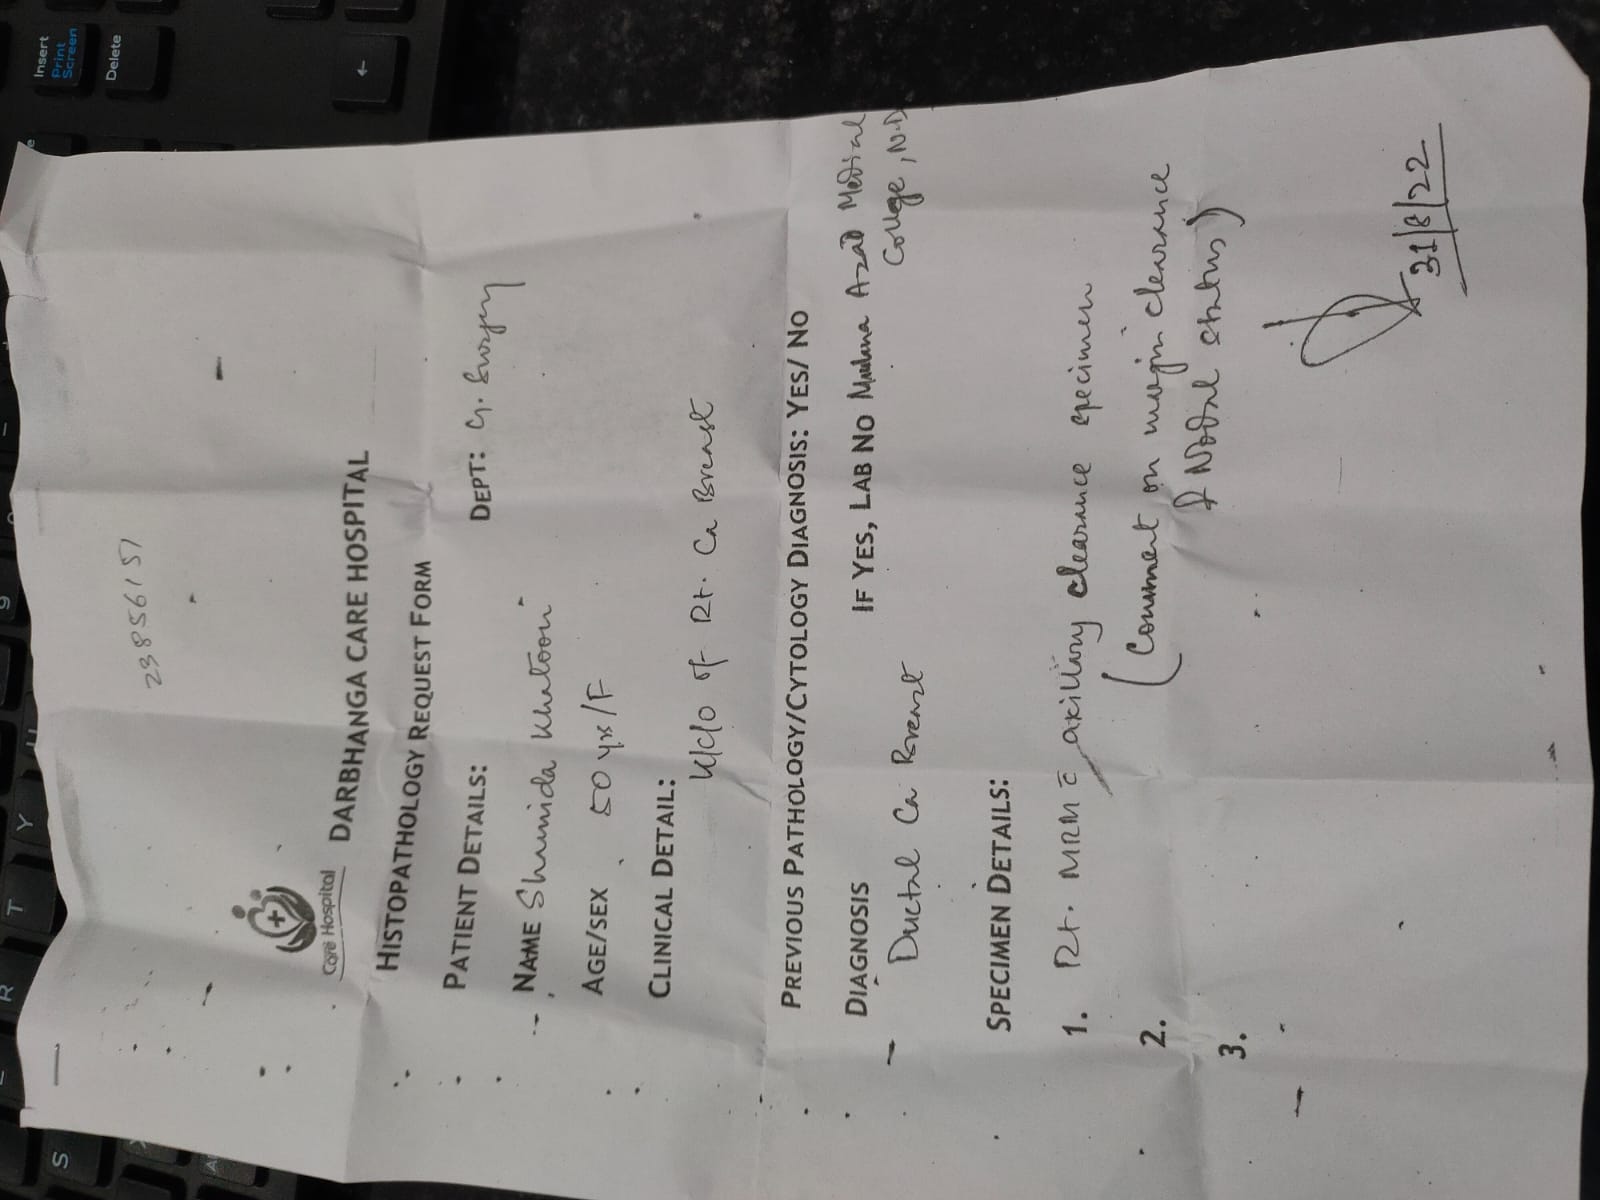 23856151
Care Hospital
DARBHANGA CARE HOSPITAL
HISTOPATHOLOGY REQUEST FORM
PATIENT DETAILS: DEPT: G. Surgery
NAME Shamida Khatoon
AGE/SEX 50 yrs/F
CLINICAL DETAIL:
K/C/O of Rt. Ca Breast
PREVIOUS PATHOLOGY/CYTOLOGY DIAGNOSIS: YES/ NO
DIAGNOSIS IF YES, LAB NO Maulana Azad Medical
College, N.D
Ductal Ca Breast
SPECIMEN DETAILS:
1. Rt. MRM c̄ axillary clearance specimen
2. (Comment on margin clearance
& Nodal status)
3.
31/8/22
Insert
Print
Screen
Delete
←
U
Y
T
R
S